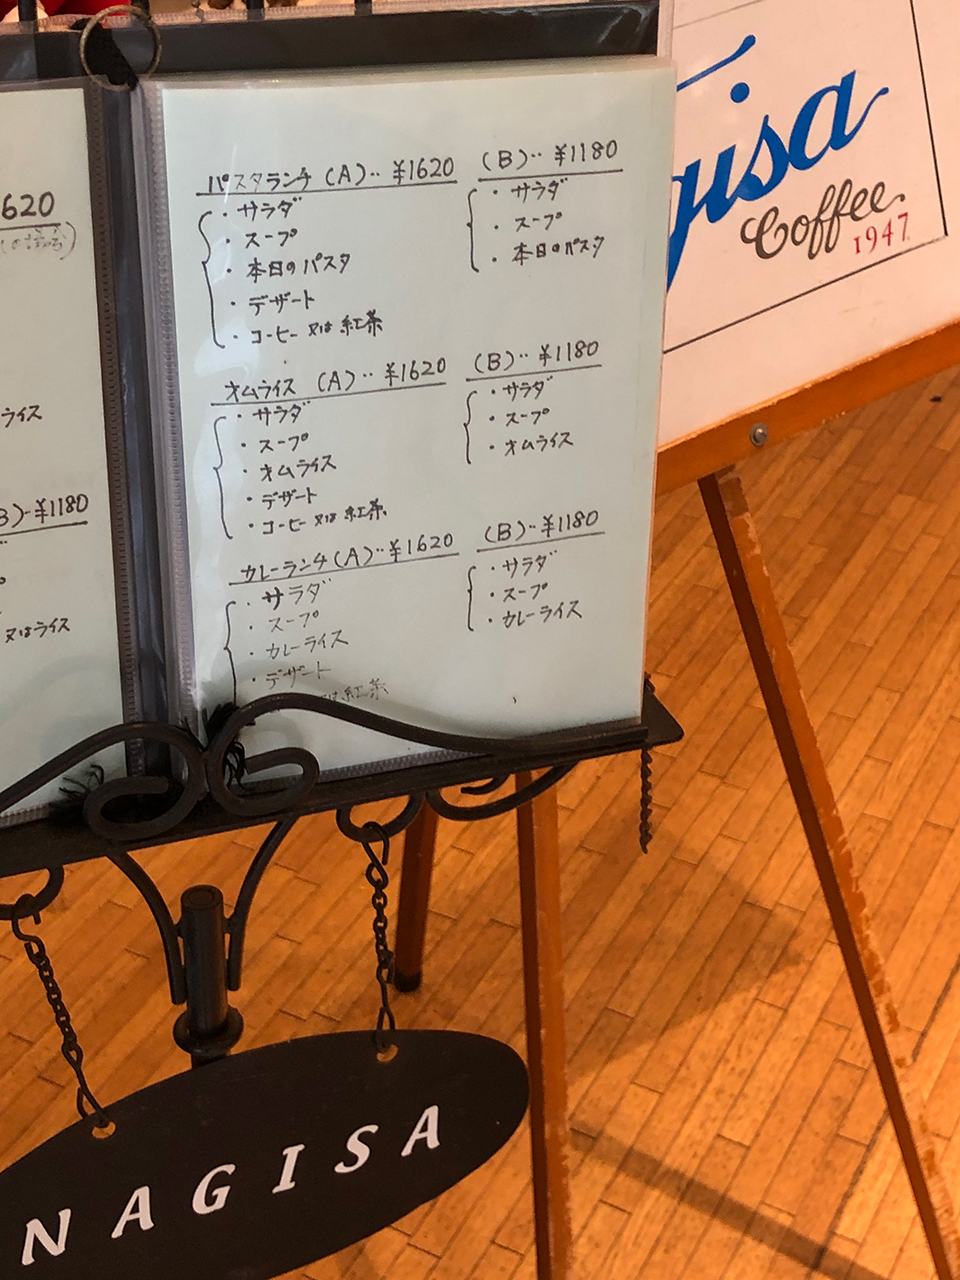 620
ライス
B)‥¥1180
又はライス
パスタランチ (A)‥¥1620
・サラダ
・スープ
・本日のパスタ
・デザート
・コーヒー 又は 紅茶
(B)‥¥1180
・サラダ
・スープ
・本日のパスタ
オムライス (A)‥¥1620
・サラダ
・スープ
・オムライス
・デザート
・コーヒー 又は 紅茶
(B)‥¥1180
・サラダ
・スープ
・オムライス
カレーランチ(A)‥¥1620
・サラダ
・スープ
・カレーライス
・デザート
又は紅茶
(B)‥¥1180
・サラダ
・スープ
・カレーライス
gisa
Coffee.
1947.
NAGISA